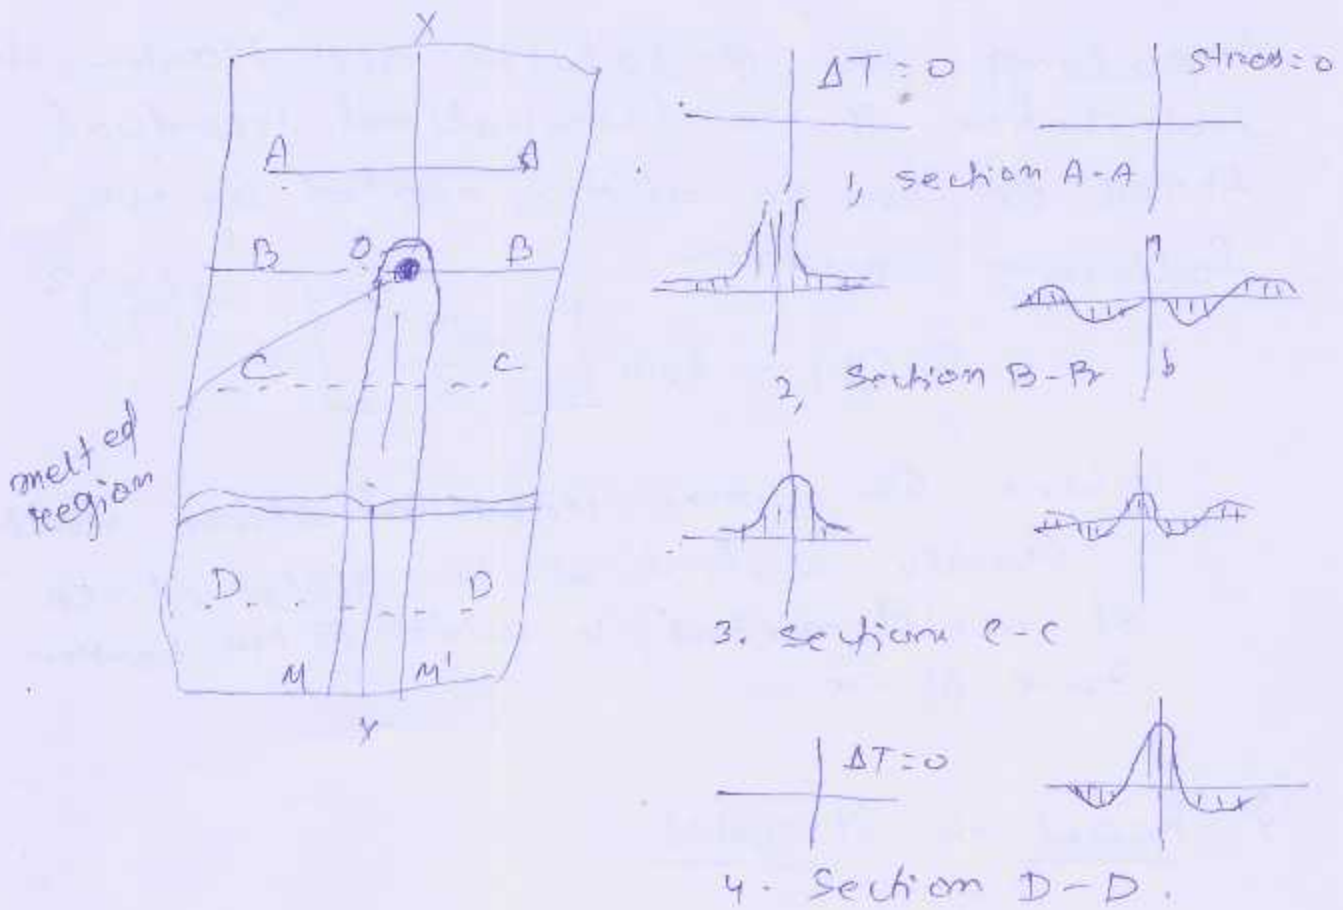 X
A A
B O B
C C
melted
region
D D
M M'
Y
ΔT = 0
stress = 0
1, section A-A
2, Section B-B
b
3. section C-C
ΔT = 0
4. Section D-D.